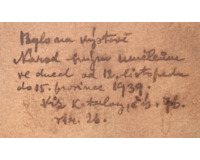 Bylo na výstavě
Národ svým umělcům
ve dnech od 12. listopadu
do 15. prosince 1939.
Viz Katalog, č.
str. 26.